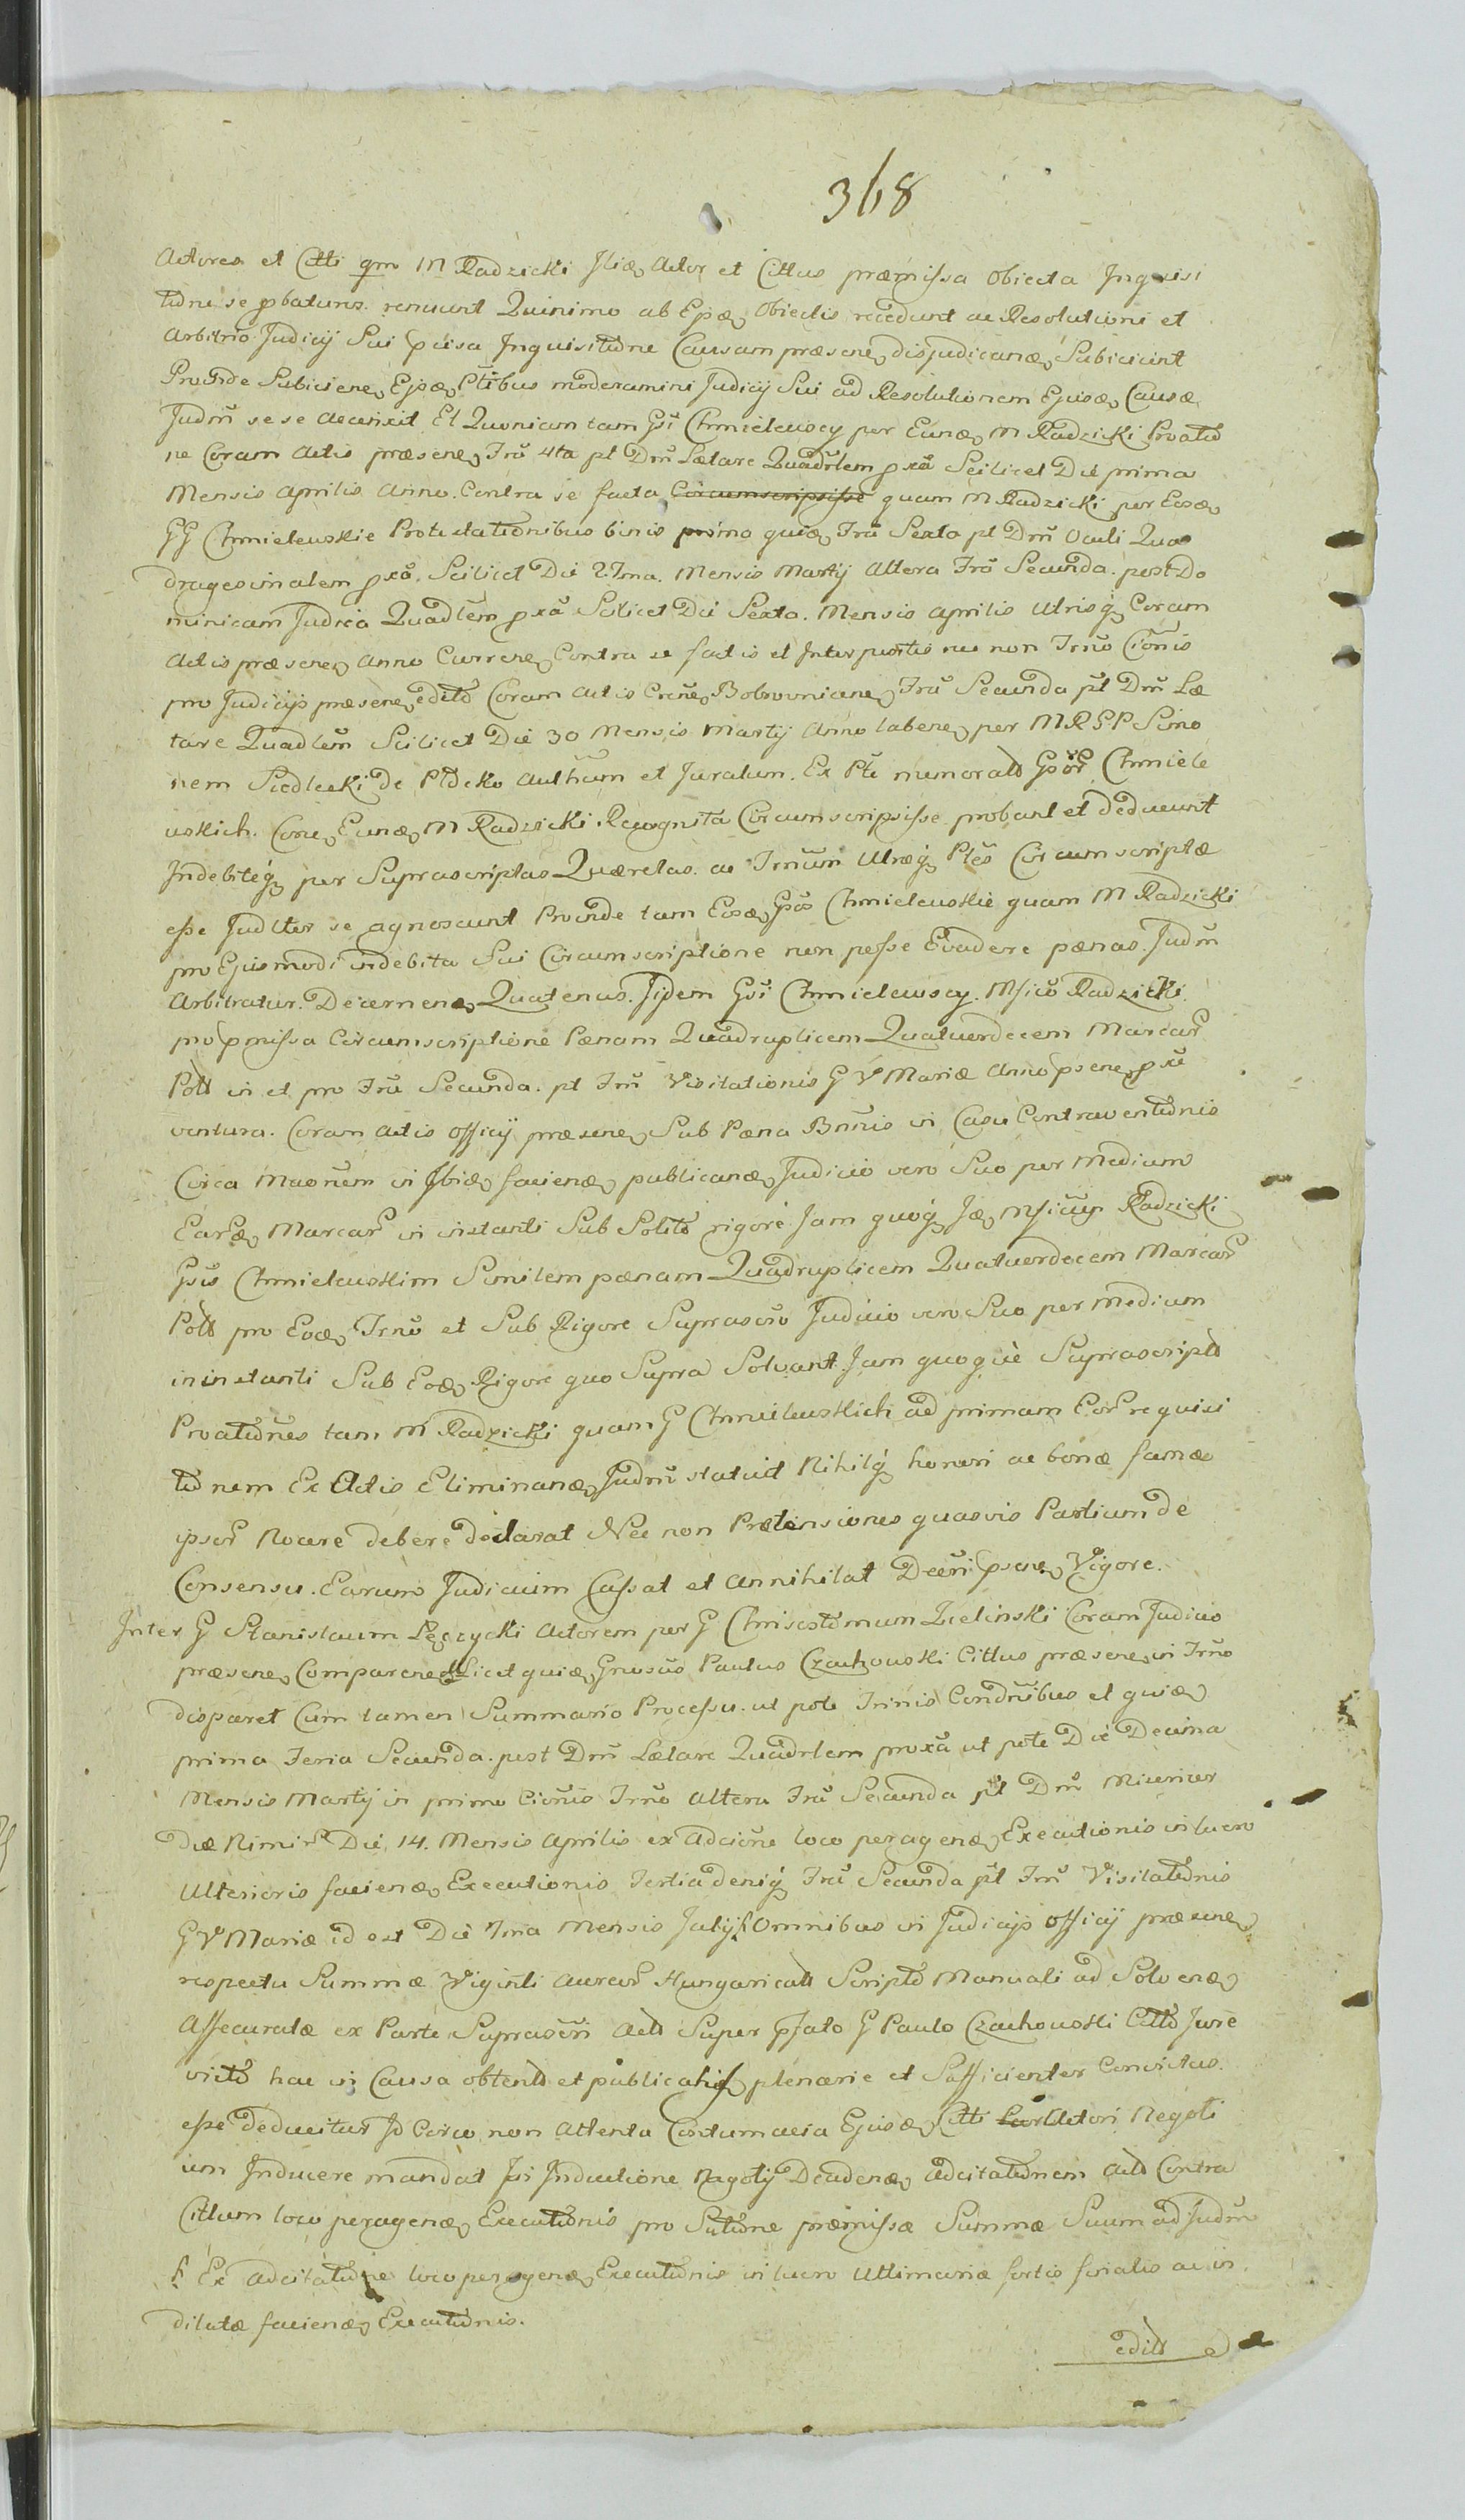 368
Actores et Citti qm M Radzicki Itidem Actor et Cittus præmissa obiecta Inquisi
tione se pbaturos renuunt Quinimo ab Ejsdem Obiectis recedunt ac Resolutioni et
Arbitrio Judicij Sui Inquisitione Causam præsenem disjudicandam Subiiciunt
Proinde Subiicienem Ejsdem Ptibus moderamini Judicij Sui ad Resolutionem Ejusdem Causæ
Judm se se accinxit Et Quoniam tam Gsi Chmielewscy per Eundem M Radzicki Proato
ne Coram Actis præsene Fria 4ta pt Dm Lætare Quadrlem pxa Scilicet Die prima
Mensis Aprilis Anno Contra se facta Circumscripsisse quam M Radzicki per Eosdem
GG Chmielewskie Protestationibus binis primo quidem Fria Sexta pt Dm Oculi Qua
dragesimalem pxa Scilicet Die 27ma Mensis Martij Altera Fria Secunda post Do
minicam Judica Quadlem pxa Scilicet Die Sexta Mensis Aprilis Utrisq Coram
Actis præsene Anno Currene Contra se factis et Interpositis nec non Trno Cionis
pro Judicijs præsene edito Coram Actis Crene Bobrownicene Fria Secunda pt Dm Læ
tare Quadlem Scilicet Die 30 Mensis Martij Anno labene per MRGP Simo
nem Siedlecki de Plocko Authum et Juratum Ex Pte memorato Gsor Chmiele
wskich Core Eundem M Radzicki Recognita Circumscripsisse probant et deducunt
Indebiteq per Suprascriptas Quærelas ac Trnum Utræq Ptes Circumscriptæ
esse Judlter se agnoscunt Proinde tam Eosdem Gsos Chmielewskie quam M Radzicki
pro Ejusmodi indebita Sui Circumscriptione non posse Evadere pænas Judm
Arbitratur Decernendo Quatenus Jidem Gsi Chmielewscy Msico Radzicki
pro pmissa Circumscriptione Pænam Quadruplicem Quatuordecem Marcar
Poll in et pro Fria Secunda pt Fm Visitationis G V Mariæ Anno psene pxe
ventura Coram Actis Officij præsene Sub Pæna Bnnis in Casu Contraventionis
Circa Maonem in Ibidem faciendam publicanda Judicio vero Suo per Medium
Earundem Marcar in instanti Sub Solito rigore Jam quoq Idem Msicus Radzicki
Gsis Chmielewskim Similem pænam Quadruplicem Quatuordecem Marcar
Poll pro Eodem Trno et Sub Rigore Suprascro Judicio vero Suo per Medium
in instanti Sub Eodem Rigore quo Supra Solvant Jam quoque Suprascripto
Proationes tam M Radzicki quam G Chmielewskich ad primam Eor requisi
tionem Ex Actis Eliminandas Judm statuit Nihilq honori ac bonæ famæ
ipsor Nocere debere declarat Nec non Prætensiones quasvis Partium de
Consensu Earum Judicium Cassat et Annihilat Decreti psene Vigore
Inter G Stanislaum Łęczycki Actorem per G Chrisostomum Zielinski Coram Judicio
præsene Comparene Licet quidem Gnosus Paulus Czachowski Cittus præsene in Trno
disparet Cum tamen Summario Processu ut pote Trinis Condnibus et quidem
prima Feria Secunda post Dm Lætare Quadrlem proxa ut pote Die Decima
Mensis Martij in primo Cionis Trno Altera Fria Secunda pt Dm Misericor
diæ Nimir Die 14 Mensis Aprilis ex Adcione loco peragendæ Executionis in lucro
Ulterioris faciendæ Executionis Tertia deniq Fria Secunda pt Fm Visitationis
G V Mariæ id est Die 7ma Mensis Julij Omnibus in Judicijs Officij præsene
respectu Summæ Viginti Aureor Hungaricall Scripto Manuali ad Solvendum
Assecuratæ ex Parte Suprascri Act Super pfato G Paulo Czachowski Citto Jure
victo hac in Causa obtento et publicatis plenarie et Sufficienter Convictus
esse deducitur Id Circo non Attenta Contumacia Ejusdem Citti Actori Negoti
um Inducere mandat In Inductione Negotij Deducendo Adcitationem Act Contra
Cittum loco peragendæ Executionis pro Sutione præmissæ Summæ Suum ad Judm
Ex Adcitatione loco peragendæ Executionis in lucro Ultimariæ fortis forialis ac in
dilatæ faciendæ Executionis.
edito